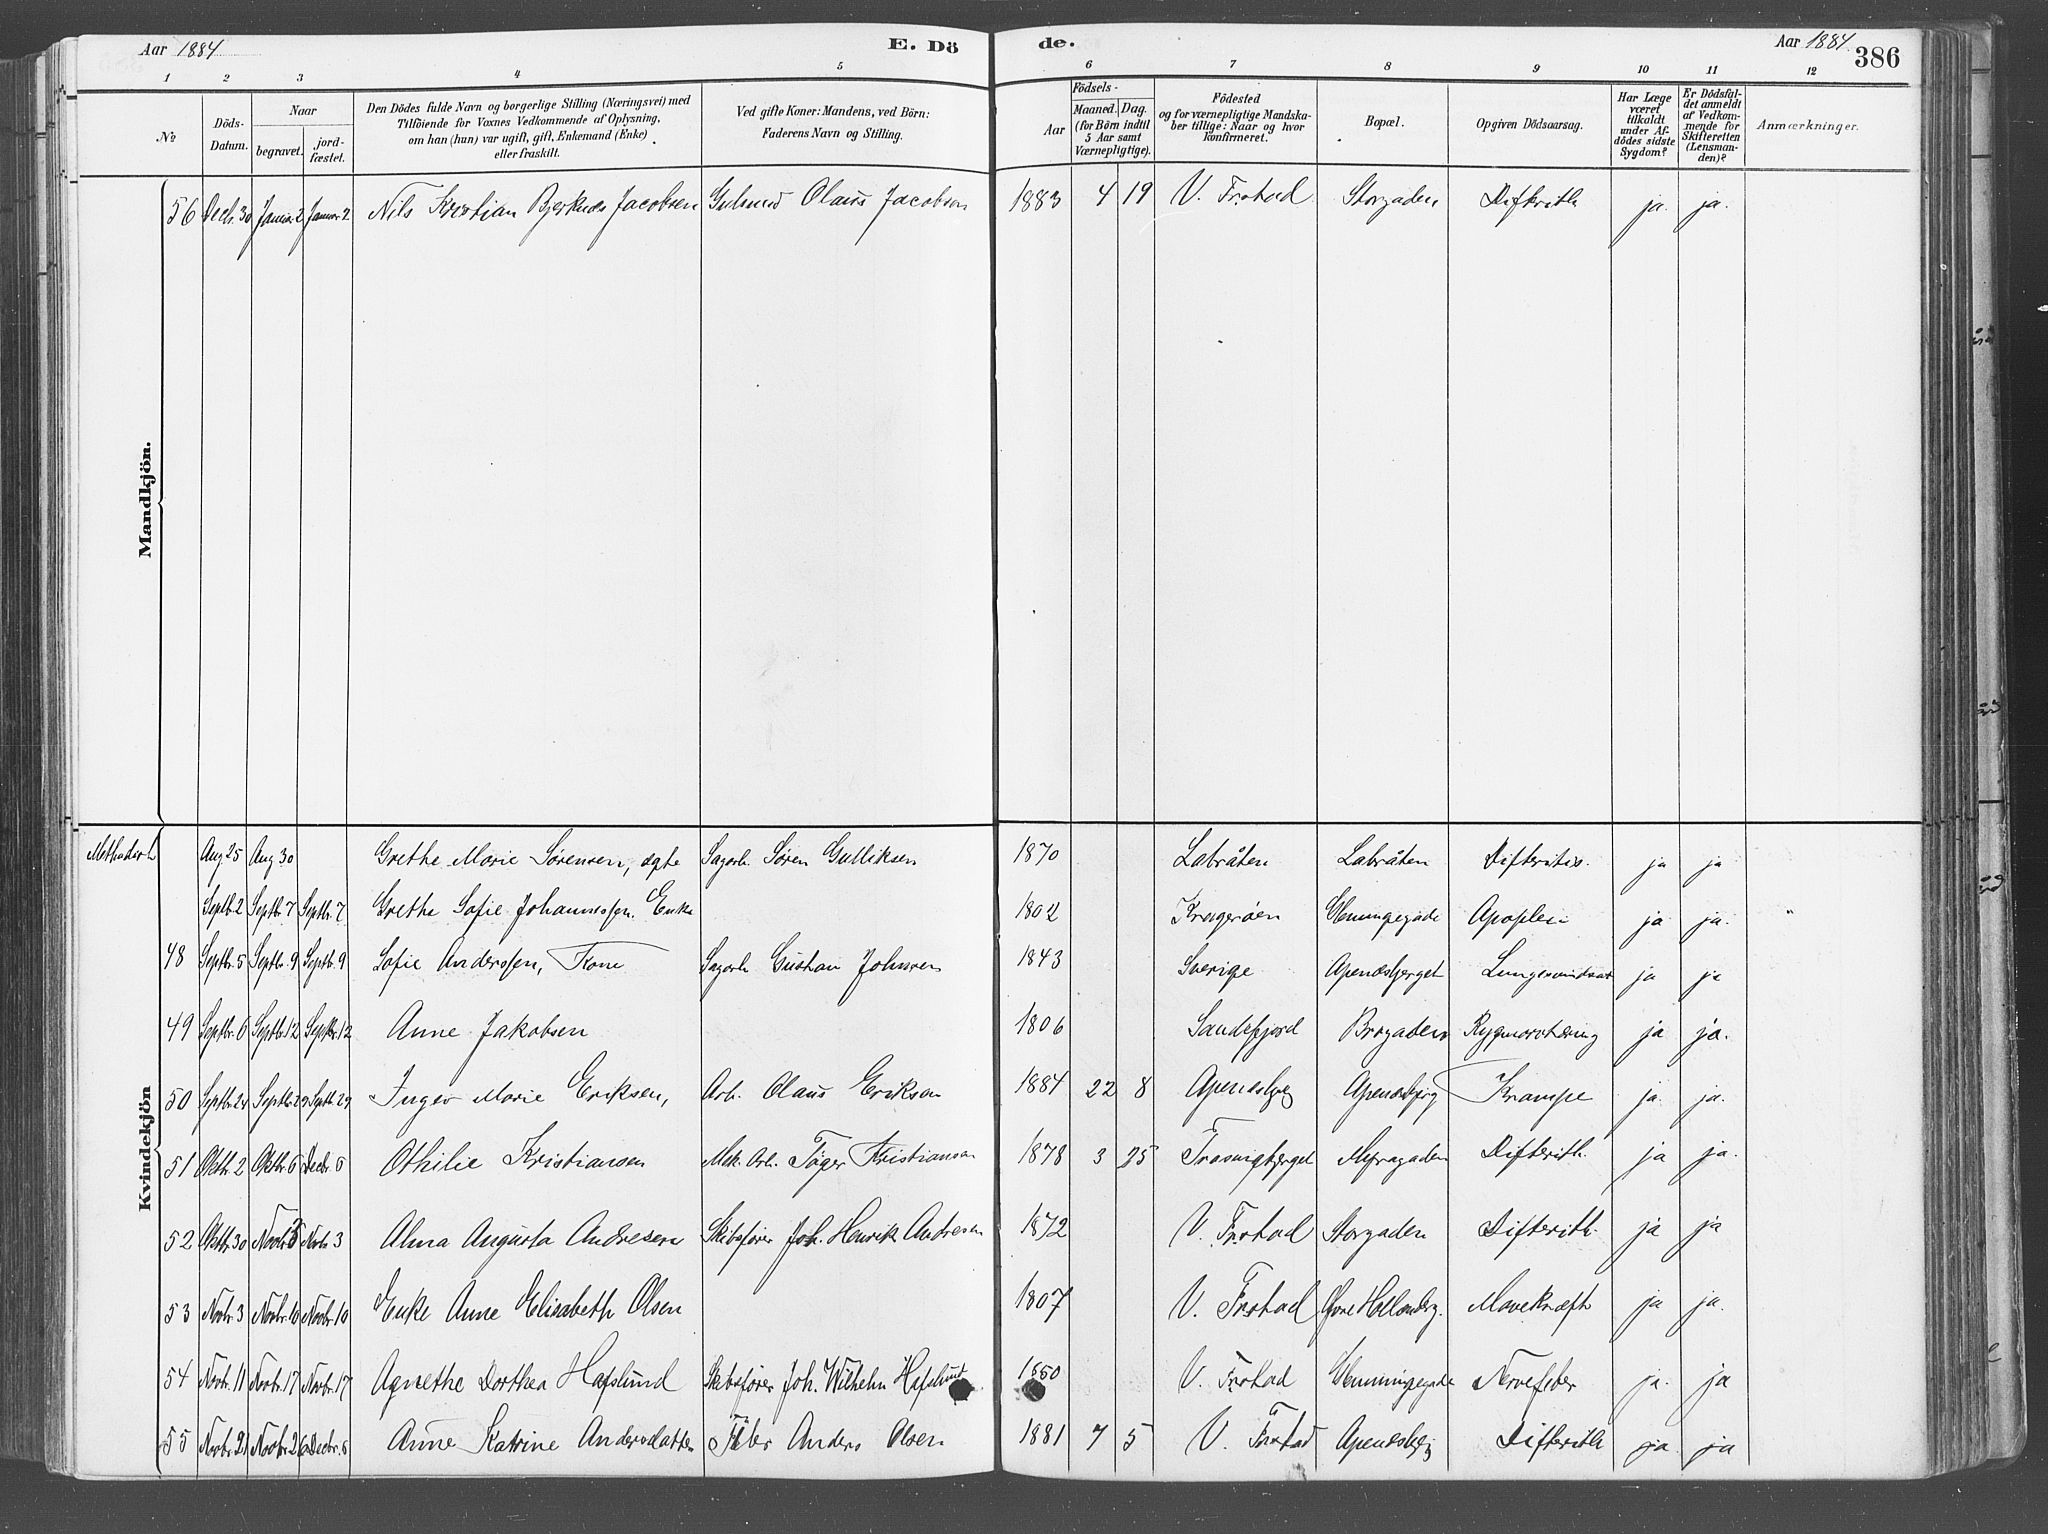 Aar 1884 E. Dö de. Aar 1884. 386
1 2 3 4 5 6 7 8 9 10 11 12
№ Döds-Datum. Naar begravet. jordfæstet. Den Dödes fulde Navn og borgerlige Stilling (Næringsvei) med Tilföiende for Voxnes Vedkommende af Oplysning, om han (hun) var ugift, gift, Enkemand (Enke) eller fraskilt. Ved gifte Koner: Mandens, ved Börn: Faderens Navn og Stilling. Aar Födsels- Maaned. Dag. (for Börn indtil 5 Aar samt Værnepligtige). Födested og for værnepligtige Mandskaber tillige: Naar og hvor konfirmeret. Bopæl. Opgiven Dödsaarsag. Har Læge været tilkaldt under Afdödes sidste Sygdom? Er Dödsfaldet anmeldt af Vedkommende for Skifteretten (Lensmanden)? Anmærkninger.
Mandkjön.
56 Decbr. 30 Januar 2 Januar 2 Nils Kristian Bjerknes Jacobsen Gulsmed Olaus Jacobsen 1883 4 19 V. Frstad Storgaden Difterith ja. ja.
Kvindekjön
Aug 25 Aug 30 Grethe Marie Sørensen, ægte Sagarb. Søren Gulliksen 1870 Labråten Labråten Difteritis. ja ja
Septbr. 2 Septbr. 7 Septbr. 7 Grethe Sofie Johannessen. Enke 1802 Kragerøen Glemmingegade Apoplexi ja ja.
48 Septbr. 5 Septbr. 9 Septbr. 9 Sofie Anderssen, Kone Sagarb Gustav Johnsen 1843 Sverige Apenæsbjerget ja ja
49 Septbr. 6 Septbr. 12 Septbr. 12 Anne Jakobsen 1806 Sandefjord Brogaden Rygmarvstæring ja ja.
50 Septbr. 24 Septbr. 29 Septbr. 29 Inger Marie Eriksen, Arb. Olaus Eriksen 1884 22 8 Apenæsbjerg Apenæsbjerg Krampe ja. ja.
51 Oktbr. 2 Oktbr. 6 Decbr. 6 Othilie Kristiansen Mek. Arb. Tøger Kristiansen 1878 3 25 Trosvigbjerget Myragaden Difterith. ja ja.
52 Oktbr. 30 Novbr. 3 Novbr. 3 Alma Augusta Andresen Skibsfører Joh. Henrik Andresen 1872 V. Frstad Storgaden Difterith. ja ja
53 Novbr. 3 Novbr. 10 Novbr. 10 Enke Anne Elisabeth Olsen 1807 V. Frstad Øvre Hollænderg. Mavekræft ja ja.
54 Novbr. 11 Novbr. 17 Novbr. 17 Agnethe Dorthea Hafslund Skibsfører Joh. Wilhelm Hafslund 1850 V. Frstad Glemmingegade Nervefeber ja. ja
55 Novbr. 21 Novbr. 26 Decbr. 6 Anne Katrine Andersdatter Filer Anders Olsen 1881 7 5 V. Frstad Apenæsbjerg Difterith ja. ja